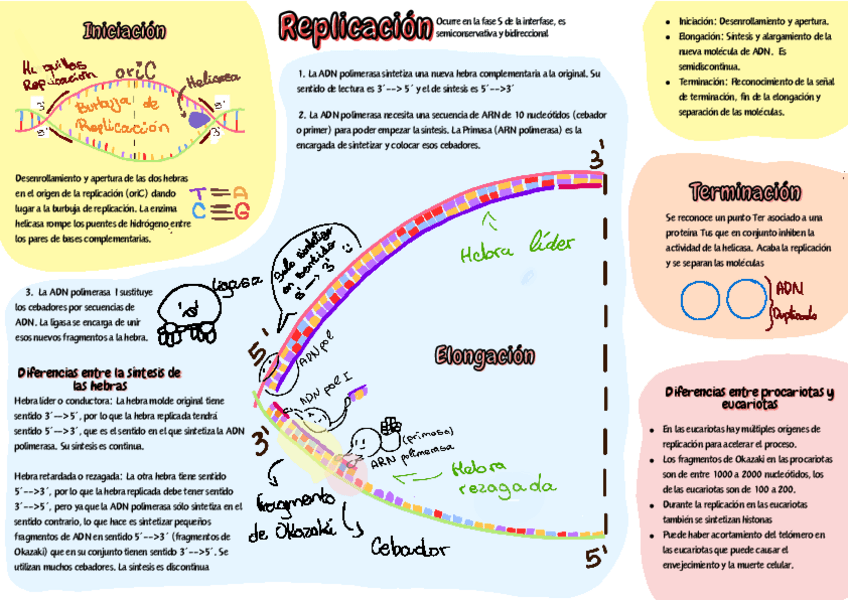 Iniciación
Horquillas
Replicación
oriC
Helicasa
3´
5´
3´
5´
Burbuja de
Replicación
Desenrollamiento y apertura de las dos hebras
en el origen de la replicación (oriC) dando
lugar a la burbuja de replicación. La enzima
helicasa rompe los puentes de hidrógeno entre
los pares de bases complementarias.
T=A
C≡G
Replicación
Ocurre en la fase S de la interfase, es
semiconservativa y bidireccional
1. La ADN polimerasa sintetiza una nueva hebra complementaria a la original. Su
sentido de lectura es 3´--> 5´ y el de síntesis es 5´-->3´
2. La ADN polimerasa necesita una secuencia de ARN de 10 nucleótidos (cebador
o primer) para poder empezar la síntesis. La Primasa (ARN polimerasa) es la
encargada de sintetizar y colocar esos cebadores.
3. La ADN polimerasa I sustituye
los cebadores por secuencias de
ADN. La ligasa se encarga de unir
esos nuevos fragmentos a la hebra.
ligasa
Solo sintetizo
en sentido
5' → 3'
3'
Hebra líder
5'
ADN pol
Elongación
ADN pol I
3'
(primasa)
ARN polimerasa
Hebra
rezagada
fragmento
de Okazaki
Cebador
5'
Diferencias entre la síntesis de
las hebras
Hebra líder o conductora: La hebra molde original tiene
sentido 3´-->5´, por lo que la hebra replicada tendrá
sentido 5´-->3´, que es el sentido en el que sintetiza la ADN
polimerasa. Su síntesis es continua.
Hebra retardada o rezagada: La otra hebra tiene sentido
5´-->3´, por lo que la hebra replicada debe tener sentido
3´-->5´, pero ya que la ADN polimerasa sólo sintetiza en el
sentido contrario, lo que hace es sintetizar pequeños
fragmentos de ADN en sentido 5´-->3´ (fragmentos de
Okazaki) que en su conjunto tienen sentido 3´-->5´. Se
utilizan muchos cebadores. La síntesis es discontinua
Iniciación: Desenrollamiento y apertura.
Elongación: Síntesis y alargamiento de la
nueva molécula de ADN. Es
semidiscontinua.
Terminación: Reconocimiento de la señal
de terminación, fin de la elongación y
separación de las moléculas.
Terminación
Se reconoce un punto Ter asociado a una
proteína Tus que en conjunto inhiben la
actividad de la helicasa. Acaba la replicación
y se separan las moléculas
ADN
Duplicado
Diferencias entre procariotas y
eucariotas
En las eucariotas hay múltiples orígenes de
replicación para acelerar el proceso.
Los fragmentos de Okazaki en las procariotas
son de entre 1000 a 2000 nucleótidos, los
de las eucariotas son de 100 a 200.
Durante la replicación en las eucariotas
también se sintetizan histonas
Puede haber acortamiento del telómero en
las eucariotas que puede causar el
envejecimiento y la muerte celular.